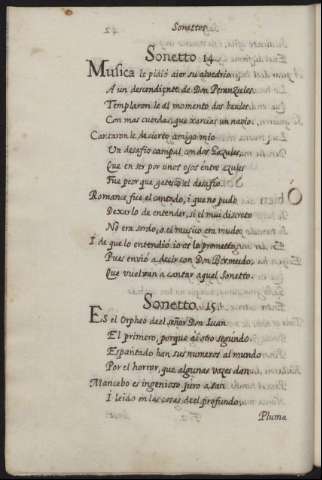 Sonettos
Sonetto 14
Musica le pidio aier su alvedrio
A un descendiente de Don Peranzules
Templaronle al momento dos baules
Con mas cuerdas, que xarcias un navio
Cantaronle de cierto amigo mio
Un desafio campal con dos Gazules
Que en ser por unos ojos entre azules
Fue peor que gatesco el desafio.
Romance fue el cantado, i que no pudo
Dexarlo de entender, si el mui discreto
No era sordo, o el musico era mudo;
I de que lo entendio io os lo prometo
Pues envio a decir con Don Bermudo,
Que vuelvan a cantar aquel Sonetto.
Sonetto 15
Es el Orpheo del señor Don Iuan
El primero, porque a otro segundo.
Espantado han sus numeros al mundo
Por el horror, que algunas vezes dan
Mancebo es ingenioso juro a san
I leido en las cosas del profundo,
Pluma